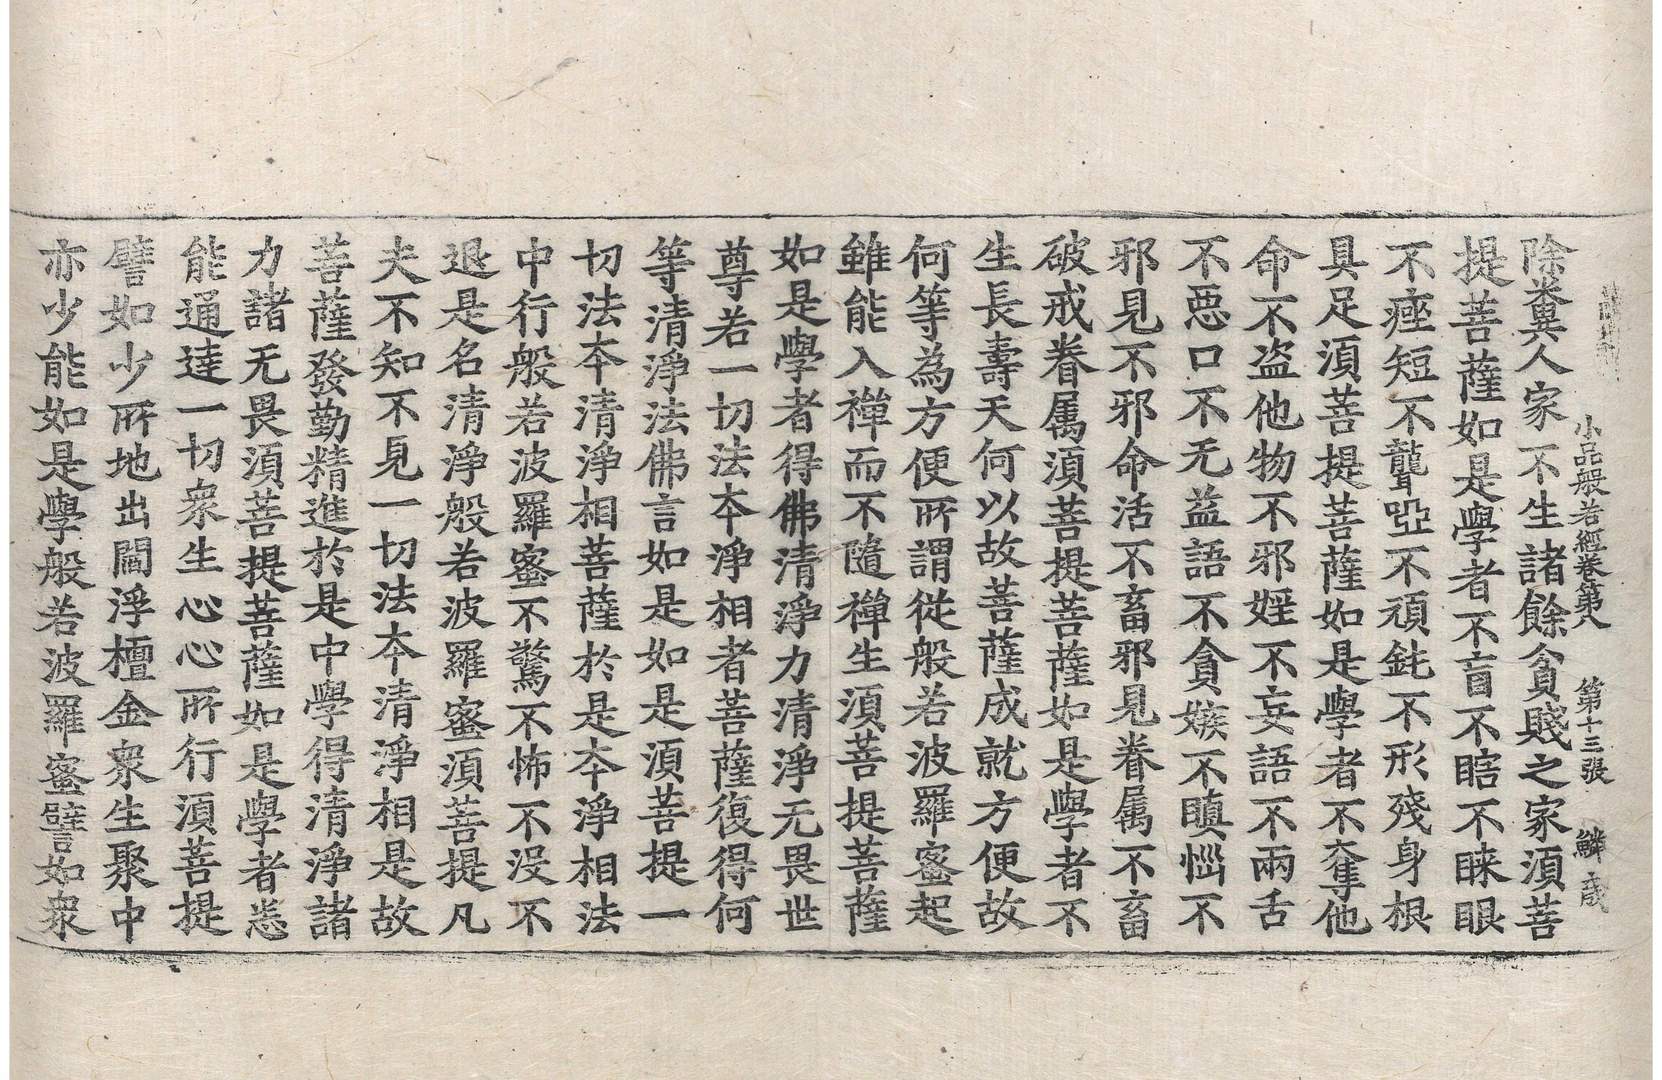 小品般若經卷第八 第十三張 鱗
除糞人家不生諸餘貧賤之家須菩
提菩薩如是學者不盲不瞎不睞眼
不痤短不聾啞不頑鈍不形殘身根
具足須菩提菩薩如是學者不奪他
命不盜他物不邪婬不妄語不兩舌
不惡口不无益語不貪嫉不瞋惱不
邪見不邪命活不畜邪見眷属不畜
破戒眷属須菩提菩薩如是學者不
生長壽天何以故菩薩成就方便故
何等為方便所謂從般若波羅蜜起
雖能入禪而不隨禪生須菩提菩薩
如是學者得佛清淨力清淨无畏世
尊若一切法本淨相者菩薩復得何
等清淨法佛言如是如是須菩提一
切法本清淨相菩薩於是本淨相法
中行般若波羅蜜不驚不怖不没不
退是名清淨般若波羅蜜須菩提凡
夫不知不見一切法本清淨相是故
菩薩發勤精進於是中學得清淨諸
力諸无畏須菩提菩薩如是學者悉
能通達一切衆生心心所行須菩提
譬如少所地出閻浮檀金衆生聚中
亦少能如是學般若波羅蜜譬如衆